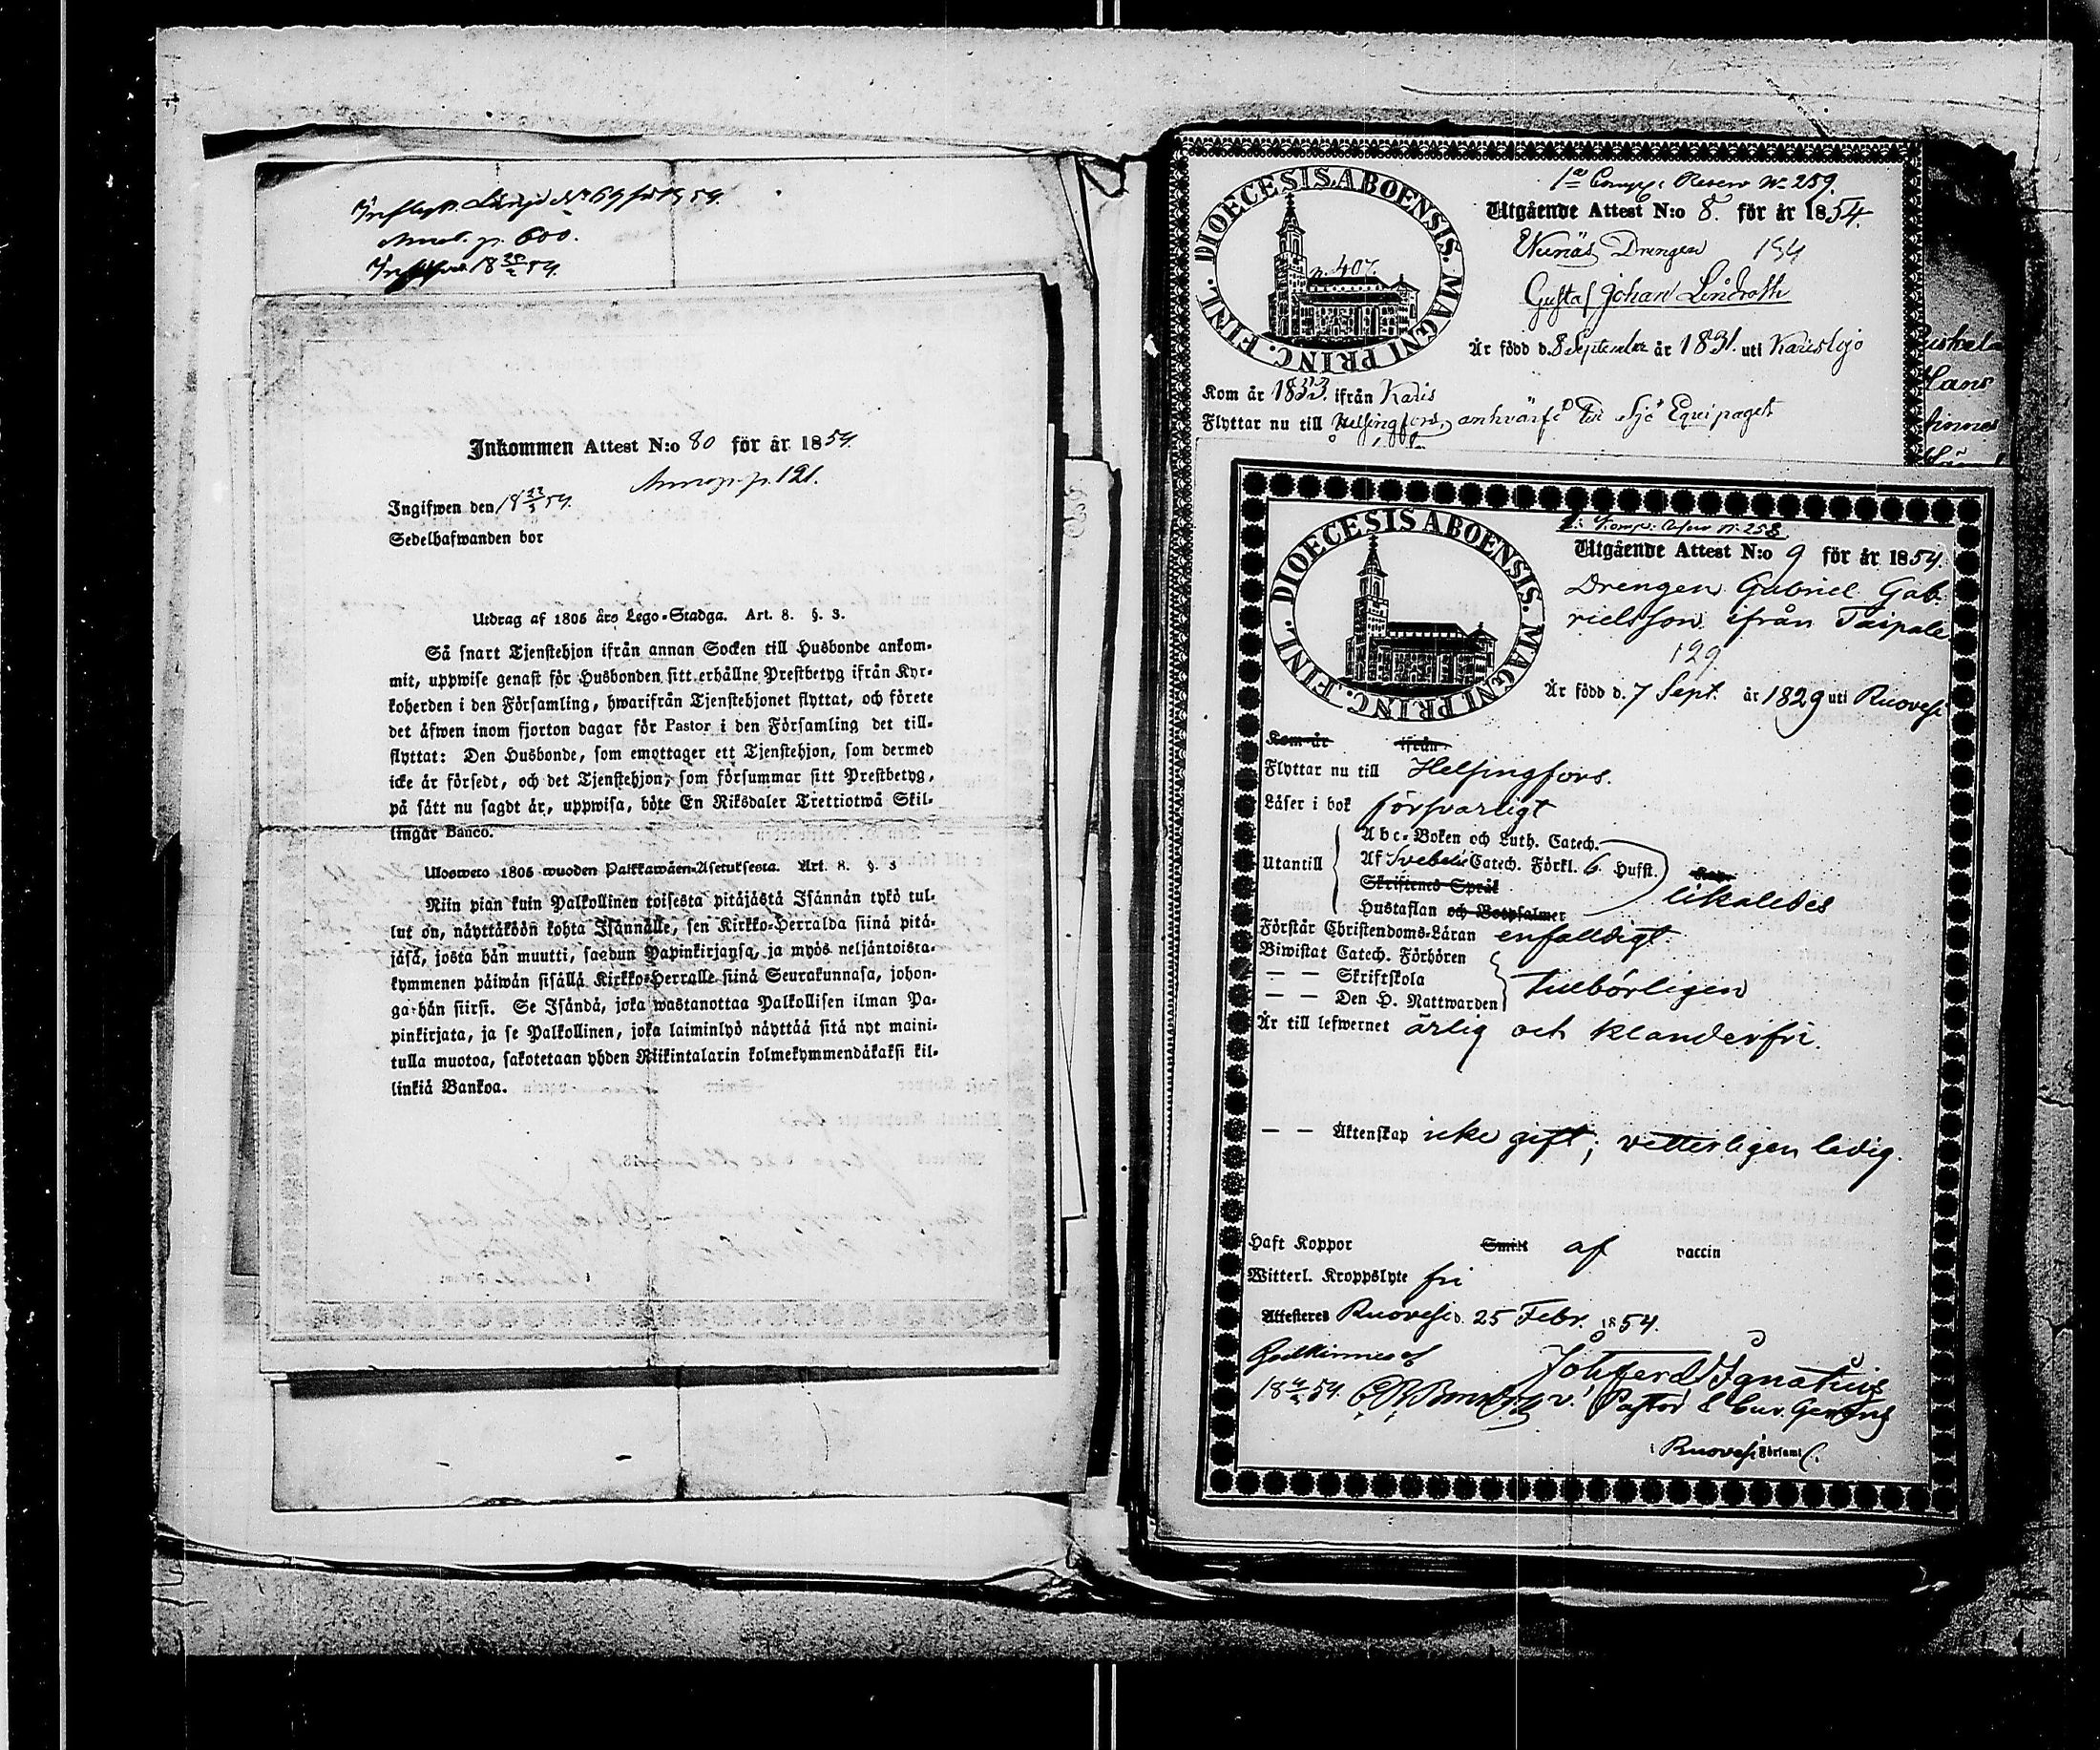 Inflytt. Längd No 69 för 1854.
Annot. p. 600.
Inkommen Attest N:o 80 för år 1854.
Annot. p. 121.
Ingifwen den 18 23/3 54.
Sedelhafwanden bor
Utdrag af 1805 års Lego-Stadga. Art. 8. §. 3.
Så snart Tjenstehjon ifrån annan Socken till Husbonde ankom-
mit, uppwise genast för Husbonden sitt erhållne Prestbetyg ifrån Kyr-
koherden i den Församling, hwarifrån Tjenstehjonet flyttat, och förete
det äfwen inom fjorton dagar för Pastor i den Församling det till-
flyttat: Den Husbonde, som emottager ett Tjenstehjon, som dermed
icke är försedt, och det Tjenstehjon, som försummar sitt Prestbetyg,
på sätt nu sagdt är, uppwisa, böte En Riksdaler Trettiotwå Skil-
lingar Banco.
Ulosweto 1805 wuoden Palkkawäen-Asetuksesta. Art. 8. §. 3
Niin pian kuin Palkollinen toisesta pitäjästä Isännän tykö tul-
lut on, näyttäköön kohta Isännälle, sen Kirkko-Herralda siinä pitä-
jäsä, josta hän muutti, saadun Papinkirjansa, ja myös neljäntoista-
kymmenen päiwän sisällä Kirkko-Herralle siinä Seurakunnasa, johon-
ga hän siirsi. Se Isändä, joka wastanottaa Palkollisen ilman Pa-
pinkirjata, ja se Palkollinen, joka laiminlyö näyttää sitä nyt maini-
tulla muotoa, sakotetaan yhden Riikintalarin kolmekymmendäkaksi kil-
linkiä Bankoa.
DIOECESIS ABOENSIS. MAGNI PRINC. FINL.
p. 407.
1a Comp: Reserv No 259.
Utgående Attest N:o 8. för år 1854.
Drengen 154
Gustaf Johan Lindroth
Är född d. 8 September år 1831. uti Karislojo
Kom år 1853. ifrån Karis
Flyttar nu till Helsingfors, anhvärfd till Sjö Equipaget
DIOECESIS ABOENSIS. MAGNI PRINC. FINL.
Utgående Attest N:o 9 för år 1854.
Drengen Gabriel Gab-
rielsson ifrån Taipale
129.
Är född d. 7 Sept. år 1829 uti Ruovesi
Kom år ifrån
Flyttar nu till Helsingfors.
Läser i bok försvarligt
Utantill
Abc-Boken och Luth. Catech.
Af Svebelii Catech. Förkl. 6 Hufst.
Skriftenes Språk
Hustaflan och Botpsalmer
likaledes
Förstår Christendoms-Läran enfalldigt.
Biwistat Catech. Förhören
— — Skriftskola
— — Den H. Nattwarden
tillbörligen
Är till lefwernet ärlig och klanderfri.
— — Äktenskap icke gift; vetterligen ledig.
Haft Koppor Smitt af vaccin
Witterl. Kroppslyte fri
Attesteres Ruovesi d. 25 Febr. 1854.
Joh. Ferd. Ignatius
v. Pastor & Cur. Gerens
i Ruovesi Församl.